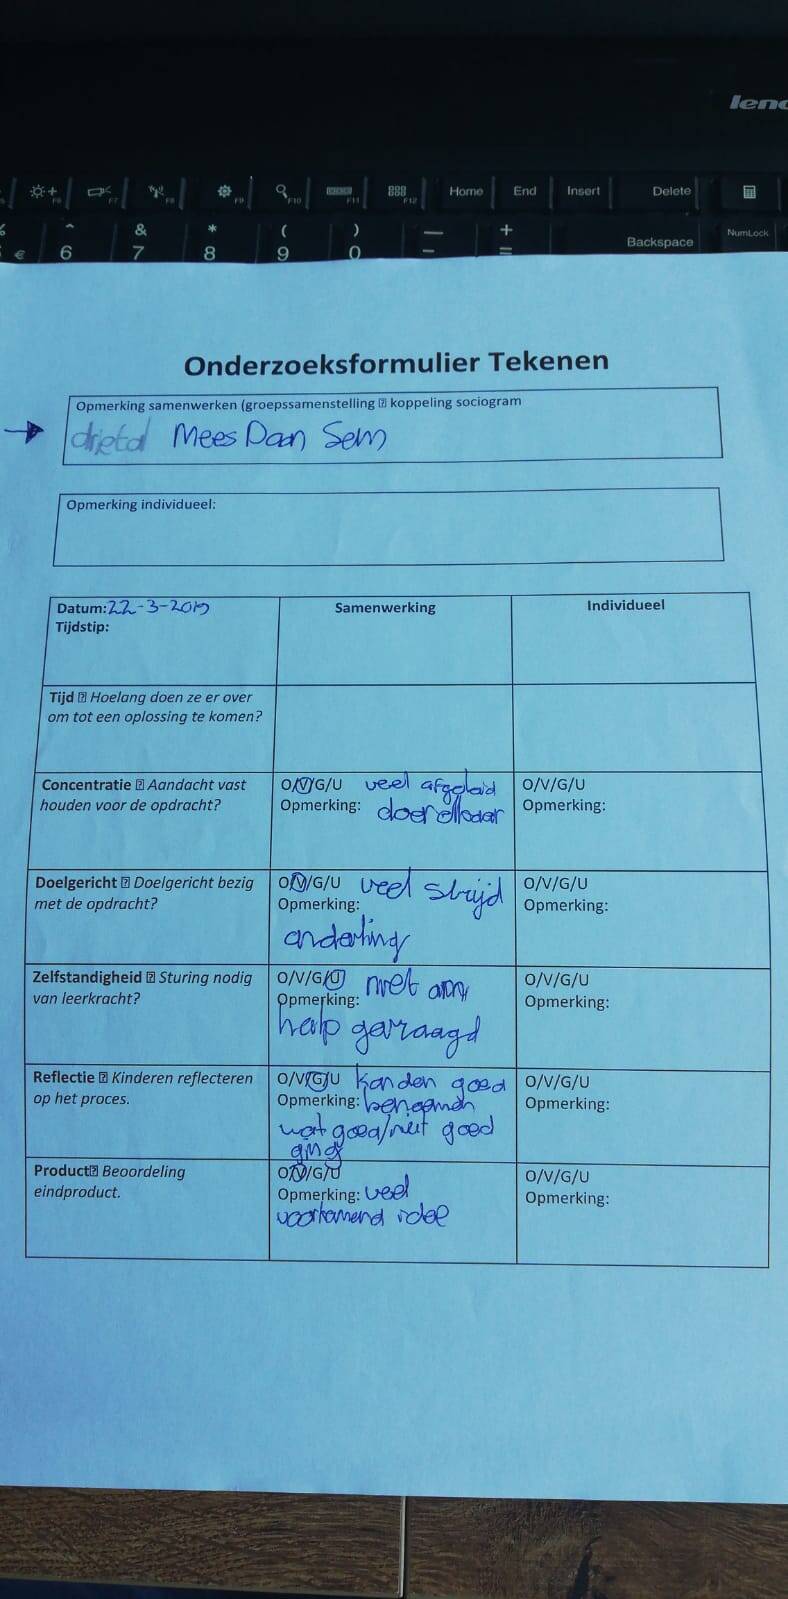 leno
F6 F7 F8 F9 F10 F11 F12 Home End Insert Delete
% € ^ 6 & 7 * 8 ( 9 ) 0 — - + = Backspace NumLock
Onderzoeksformulier Tekenen
Opmerking samenwerken (groepssamenstelling ⍰ koppeling sociogram
drietal Mees Daan Sem
Opmerking individueel:
Datum:22-3-2019 Samenwerking Individueel
Tijdstip:
Tijd ⍰ Hoelang doen ze er over
om tot een oplossing te komen?
Concentratie ⍰ Aandacht vast
houden voor de opdracht?
O/V/G/U veel afgeleid
Opmerking: door elkaar
O/V/G/U
Opmerking:
Doelgericht ⍰ Doelgericht bezig
met de opdracht?
O/V/G/U veel strijd
Opmerking:
onderling
O/V/G/U
Opmerking:
Zelfstandigheid ⍰ Sturing nodig
van leerkracht?
O/V/G/U niet om
Opmerking:
hulp gevraagd
O/V/G/U
Opmerking:
Reflectie ⍰ Kinderen reflecteren
op het proces.
O/V/G/U konden goed
Opmerking: benoemen
wat goed/niet goed
ging
O/V/G/U
Opmerking:
Product⍰ Beoordeling
eindproduct.
O/V/G/U
Opmerking: veel
voorkomend idee
O/V/G/U
Opmerking: